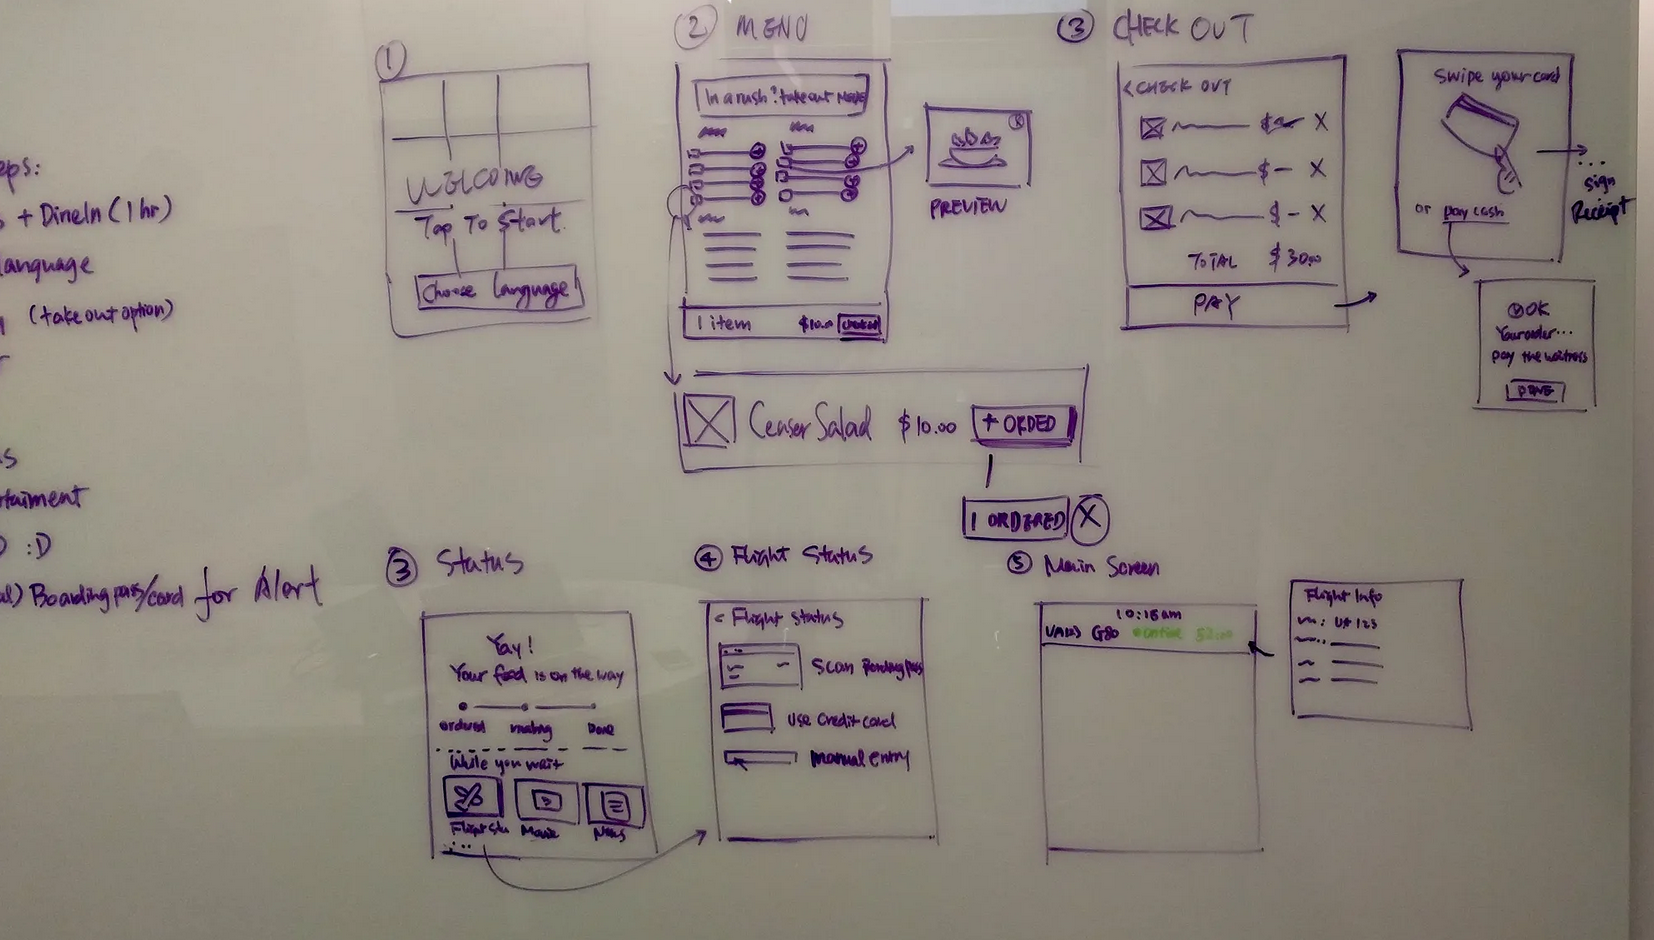 eps:
s + DineIn (1 hr)
language
(take out option)
s
rtaiment
:D
al) Boarding pass/card for Alert
①
WELCOME
Tap To Start.
Choose Language
② MENU
In a rush? take out MODE
1 item $10.0
PREVIEW
Ceaser Salad $10.00 + ORDED
1 ORDERED X
③ CHECK OUT
< CHECK OUT
$ X
$ - X
$ - X
TOTAL $30.00
PAY
Swipe your card
or pay cash
...
sign
Receipt
OK
Your order...
pay the waitress
DONE
③ Status
Yay!
Your food is on the way
ordered making Done
While you wait
Flight Sta Movie News
...
④ Flight Status
< Flight Status
Scan Boarding pass
Use Credit card
Manual entry
⑤ Main Screen
10:15am
G80
Flight Info
: UA 123